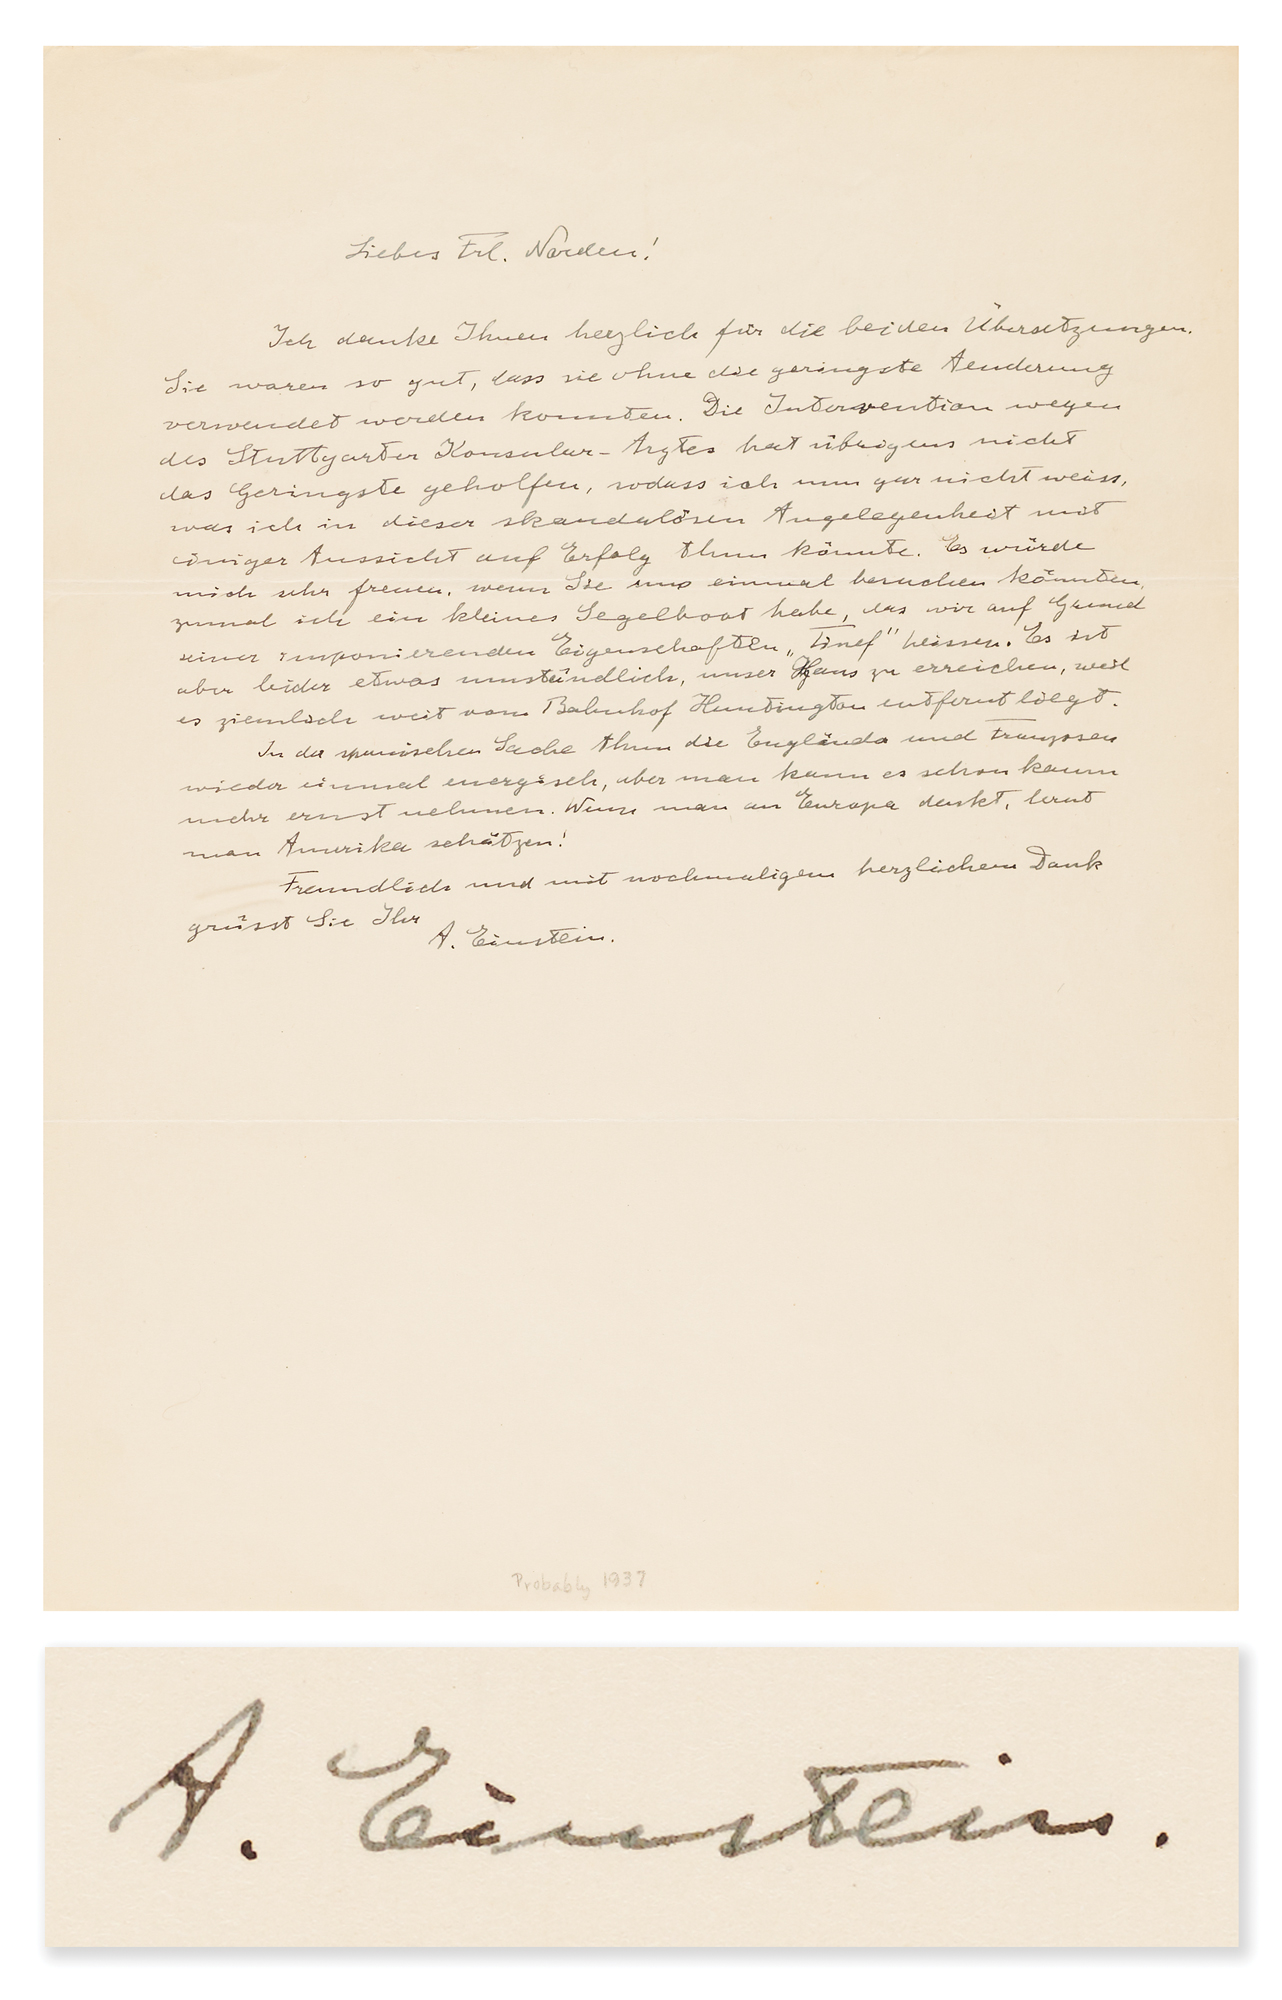 Liebes Frl. Norden!
Ich danke Ihnen herzlich für die beiden Übersetzungen.
Sie waren so gut, dass sie ohne die geringste Aenderung
verwendet werden konnten. Die Intervention wegen
des Stuttgarter Konsular-Arztes hat übrigens nicht
das Geringste geholfen, sodass ich nun gar nicht weiss,
was ich in dieser skandalösen Angelegenheit mit
einiger Aussicht auf Erfolg thun könnte. Es würde
mich sehr freuen, wenn Sie uns einmal besuchen könnten,
zumal ich ein kleines Segelboot habe, das wir auf Grund
seiner imponierenden Eigenschaften „Tinef" heissen. Es ist
aber leider etwas umständlich, unser Haus zu erreichen, weil
es ziemlich weit vom Bahnhof Huntington entfernt liegt.
In der spanischen Sache thun die Engländer und Franzosen
wieder einmal energisch, aber man kann es schon kaum
mehr ernst nehmen. Wenn man an Europa denkt, lernt
man Amerika schätzen!
Freundlich und mit nochmaligem herzlichem Dank
grüsst Sie Ihr
A. Einstein.
Probably 1937
A. Einstein.